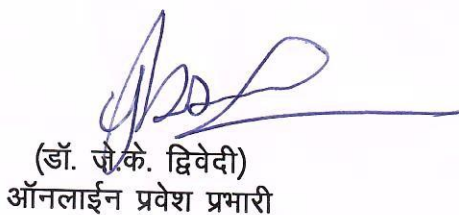 (डॉ. जे.के. द्विवेदी)
ऑनलाईन प्रवेश प्रभारी